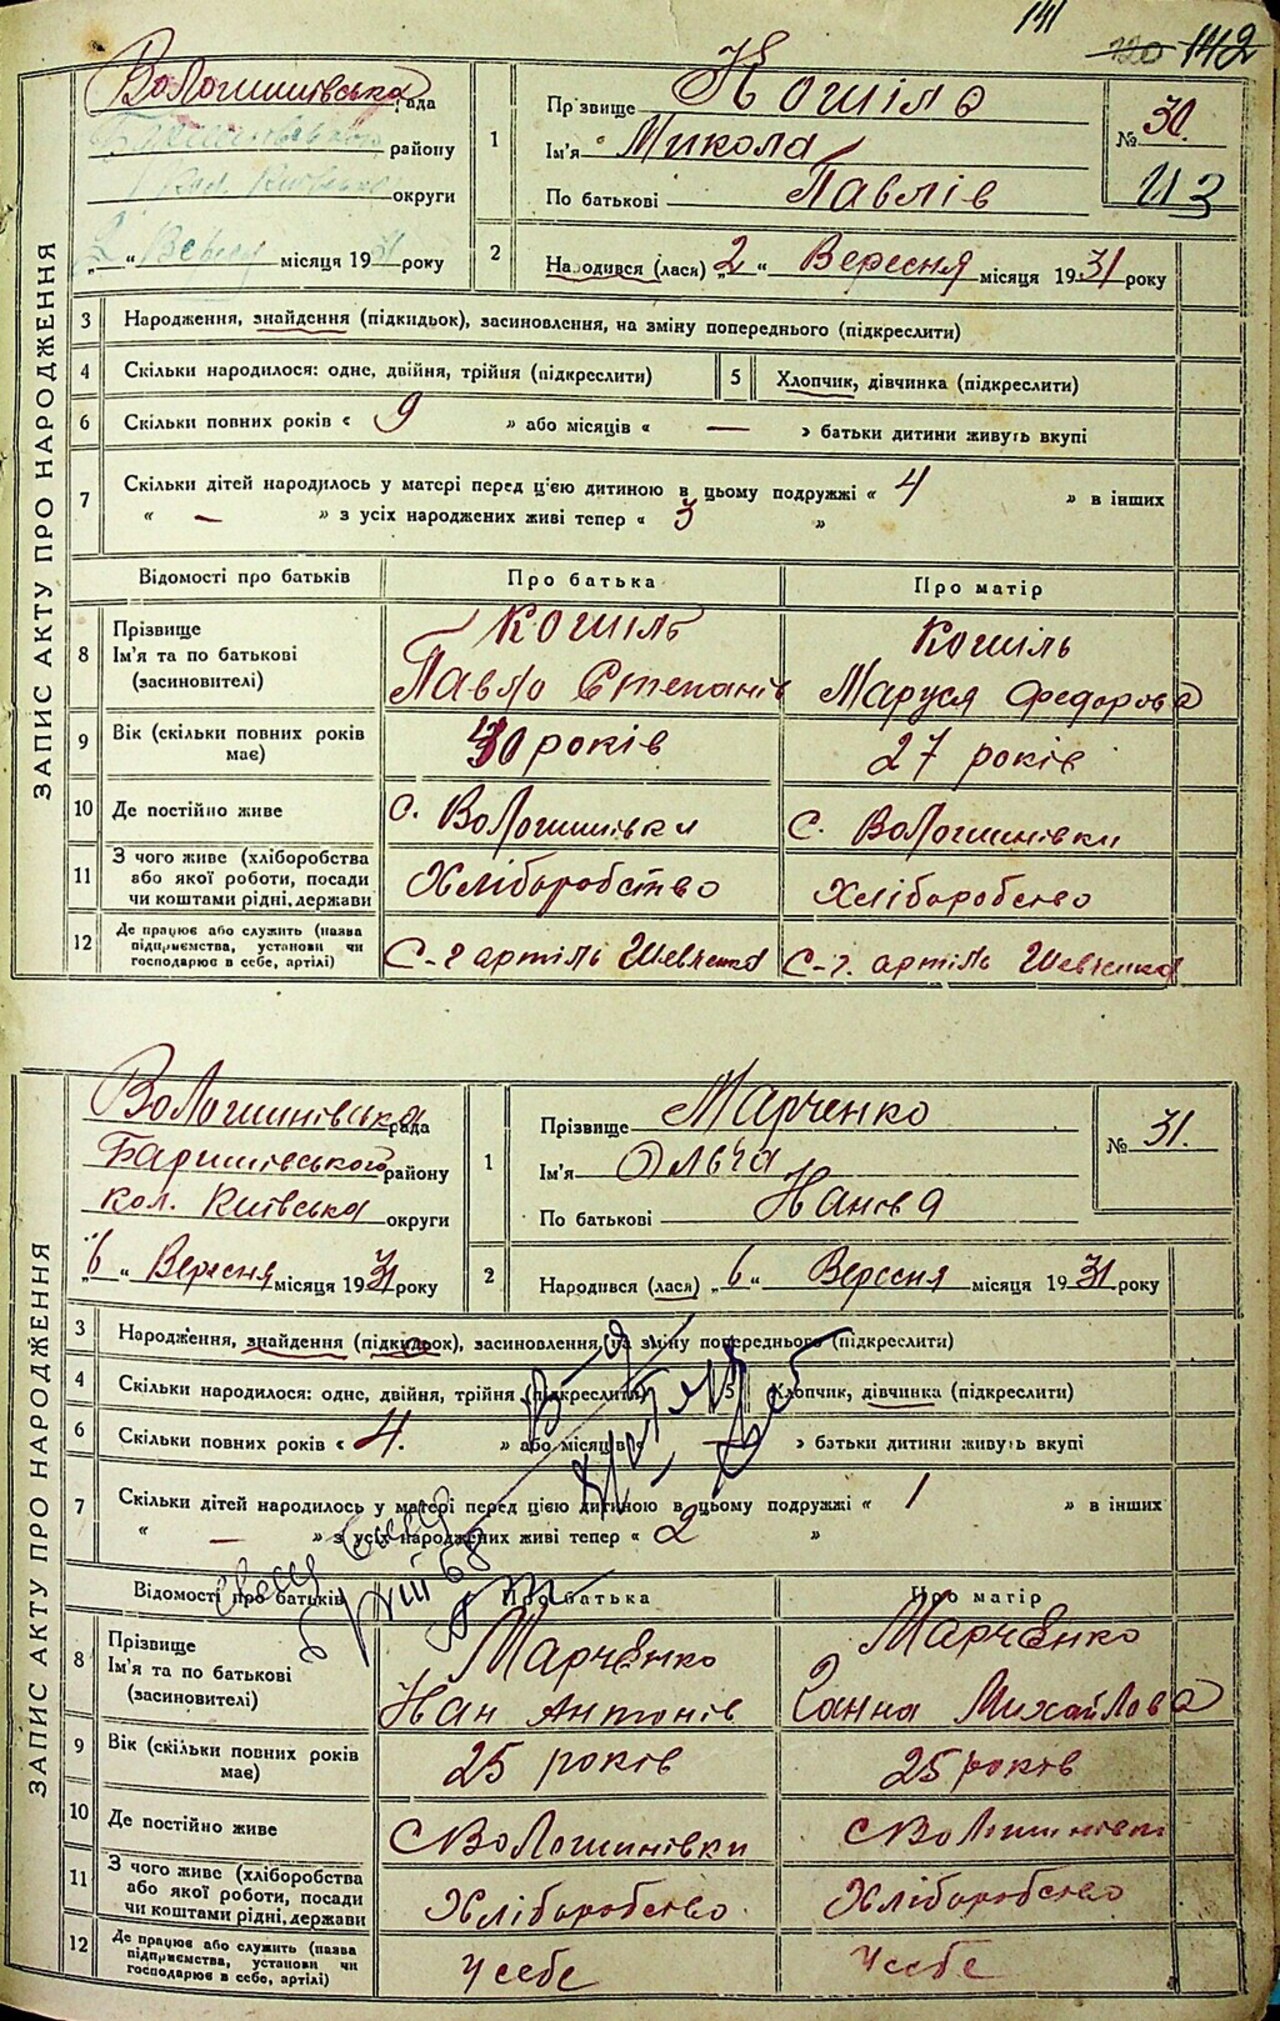 141
120 142
ЗАПИС АКТУ ПРО НАРОДЖЕННЯ
Вологишивська рада
району
округи
2 Верес місяця 1931 року
1 Прізвище Кошіль
Ім'я Микола
По батькові Павлів
№ 30.
113
2 Народився (лася) „2“ Вересня місяця 1931 року
3 Народження, знайдення (підкидьок), засиновлення, на зміну попереднього (підкреслити)
4 Скільки народилося: одне, двійня, трійня (підкреслити) 5 Хлопчик, дівчинка (підкреслити)
6 Скільки повних років « 9 » або місяців « — » батьки дитини живуть вкупі
7 Скільки дітей народилось у матері перед цією дитиною в цьому подружжі « 4 » в інших
« — » з усіх народжених живі тепер « 3 »
Відомості про батьків Про батька Про матір
8 Прізвище Ім'я та по батькові (засиновителі)
Кошіль Павло Степанів
Кошіль Маруся Федорова
9 Вік (скільки повних років має) 30 років 27 років
10 Де постійно живе с. Вологишівки с. Вологшинівки
11 З чого живе (хліборобства або якої роботи, посади чи коштами рідні, держави
Хліборобство Хліборобство
12 Де працює або служить (назва підприємства, установи чи господарює в себе, артілі)
С-г артіль Шевченка С-г. артіль Шевченка
ЗАПИС АКТУ ПРО НАРОДЖЕННЯ
Волошинівська рада
Баришівського району
кол. Київська округи
„6“ Вересня місяця 1931 року
1 Прізвище Марченко
Ім'я Ольга
По батькові Іванова
№ 31.
2 Народився (лася) „6“ Вересня місяця 1931 року
3 Народження, знайдення (підкидьок), засиновлення, на зміну попереднього (підкреслити)
4 Скільки народилося: одне, двійня, трійня (підкреслити) 5 Хлопчик, дівчинка (підкреслити)
6 Скільки повних років « 4. » або місяців « — » батьки дитини живуть вкупі
7 Скільки дітей народилось у матері перед цією дитиною в цьому подружжі « 1 » в інших
« — » з усіх народжених живі тепер « 2 »
Відомості про батьків Про батька Про матір
8 Прізвище Ім'я та по батькові (засиновителі)
Марченко Іван Антонів
Марченко Ганна Михайлова
9 Вік (скільки повних років має) 25 років 25 років
10 Де постійно живе с Волошинівки с Волошинівки
11 З чого живе (хліборобства або якої роботи, посади чи коштами рідні, держави
Хліборобство Хліборобство
12 Де працює або служить (назва підприємства, установи чи господарює в себе, артілі)
у себе у себе